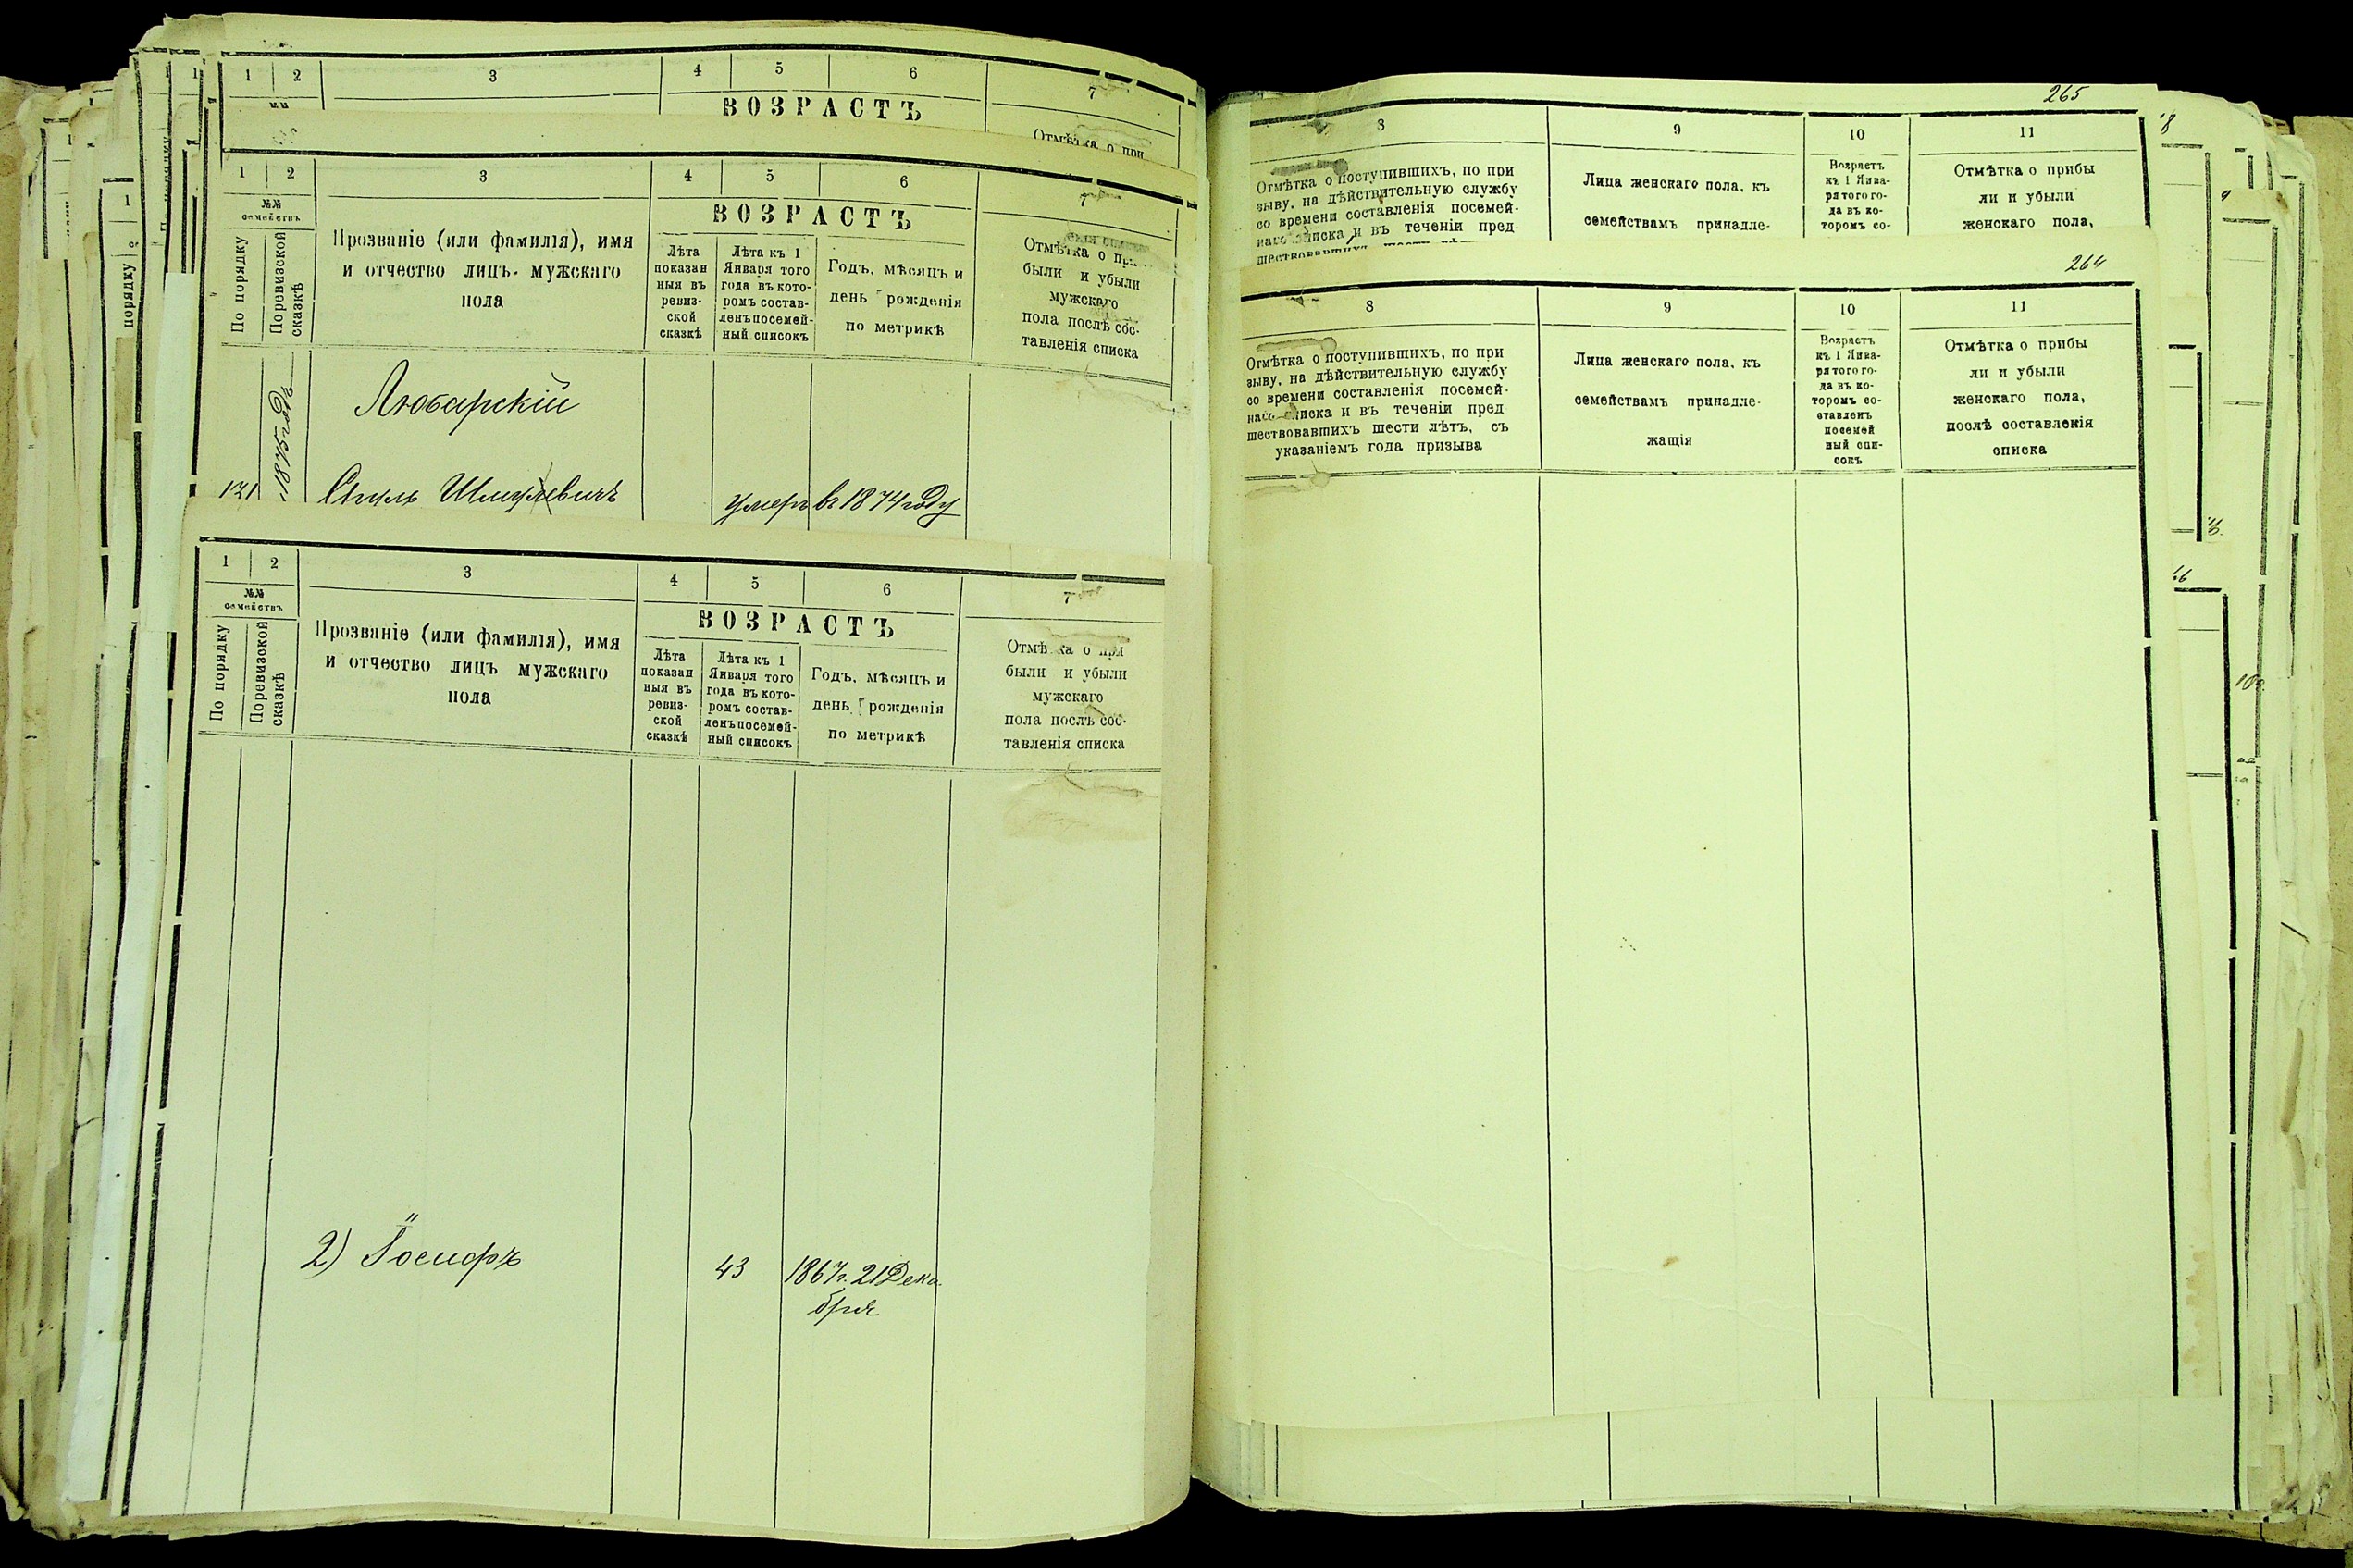 1 2 3 4 5 6 7
ВОЗРАСТЪ
Отмѣтка о при
1 2 3 4 5 6 7
№№
семействъ
По порядку
Поревизской
сказкѣ
Прозваніе (или фамилія), имя
и отчество лицъ мужскаго
пола
ВОЗРАСТЪ
Лѣта
показан
ныя въ
ревиз-
ской
сказкѣ
Лѣта къ 1
Января того
года въ кото-
ромъ состав-
ленъ посемей-
ный списокъ
Годъ, мѣсяцъ и
день рожденія
по метрикѣ
Отмѣтка о при
были и убыли
мужскаго
пола послѣ сос-
тавленія списка
1875 годъ
Любарскій
121
Шмулевичъ
умеръ въ 1874 году
1 2 3 4 5 6 7
№№
семействъ
По порядку
Поревизской
сказкѣ
Прозваніе (или фамилія), имя
и отчество лицъ мужскаго
пола
ВОЗРАСТЪ
Лѣта
показан
ныя въ
ревиз-
ской
сказкѣ
Лѣта къ 1
Января того
года въ кото-
ромъ состав-
ленъ посемей-
ный списокъ
Годъ, мѣсяцъ и
день рожденія
по метрикѣ
Отмѣтка о при
были и убыли
мужскаго
пола послѣ сос-
тавленія списка
2) Іосифъ 43 1867г. 21 Дека
бря
265
8 9 10 11
Отмѣтка о поступившихъ, по при
зыву, на дѣйствительную службу
со времени составленія посемей-
наго списка и въ теченіи пред
шествовавшихъ шести лѣтъ
Лица женскаго пола, къ
семействамъ принадле-
Возрастъ
къ 1 Янва-
ря того го-
да въ ко-
торомъ со-
Отмѣтка о прибы
ли и убыли
женскаго пола,
264
8 9 10 11
Отмѣтка о поступившихъ, по при
зыву, на дѣйствительную службу
со времени составленія посемей-
наго списка и въ теченіи пред
шествовавшихъ шести лѣтъ, съ
указаніемъ года призыва
Лица женскаго пола, къ
семействамъ принадле-
жащія
Возрастъ
къ 1 Янва-
ря того го-
да въ ко-
торомъ со-
ставленъ
посемей
ный спи-
сокъ
Отмѣтка о прибы
ли и убыли
женскаго пола,
послѣ составленія
списка